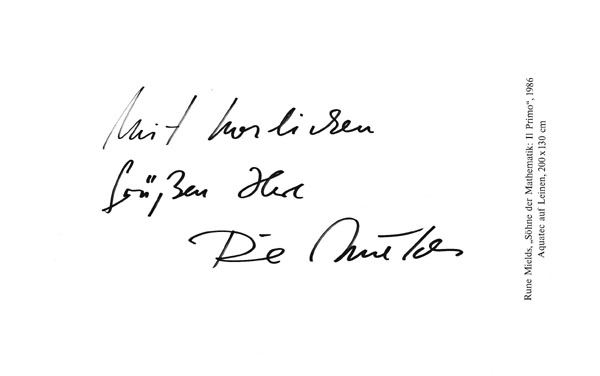 Mit herzlichen
Grüßen Ihre
Rune Mields
Rune Mields, „Söhne der Mathematik: Il Primo“, 1986
Aquatec auf Leinen, 200 x 130 cm